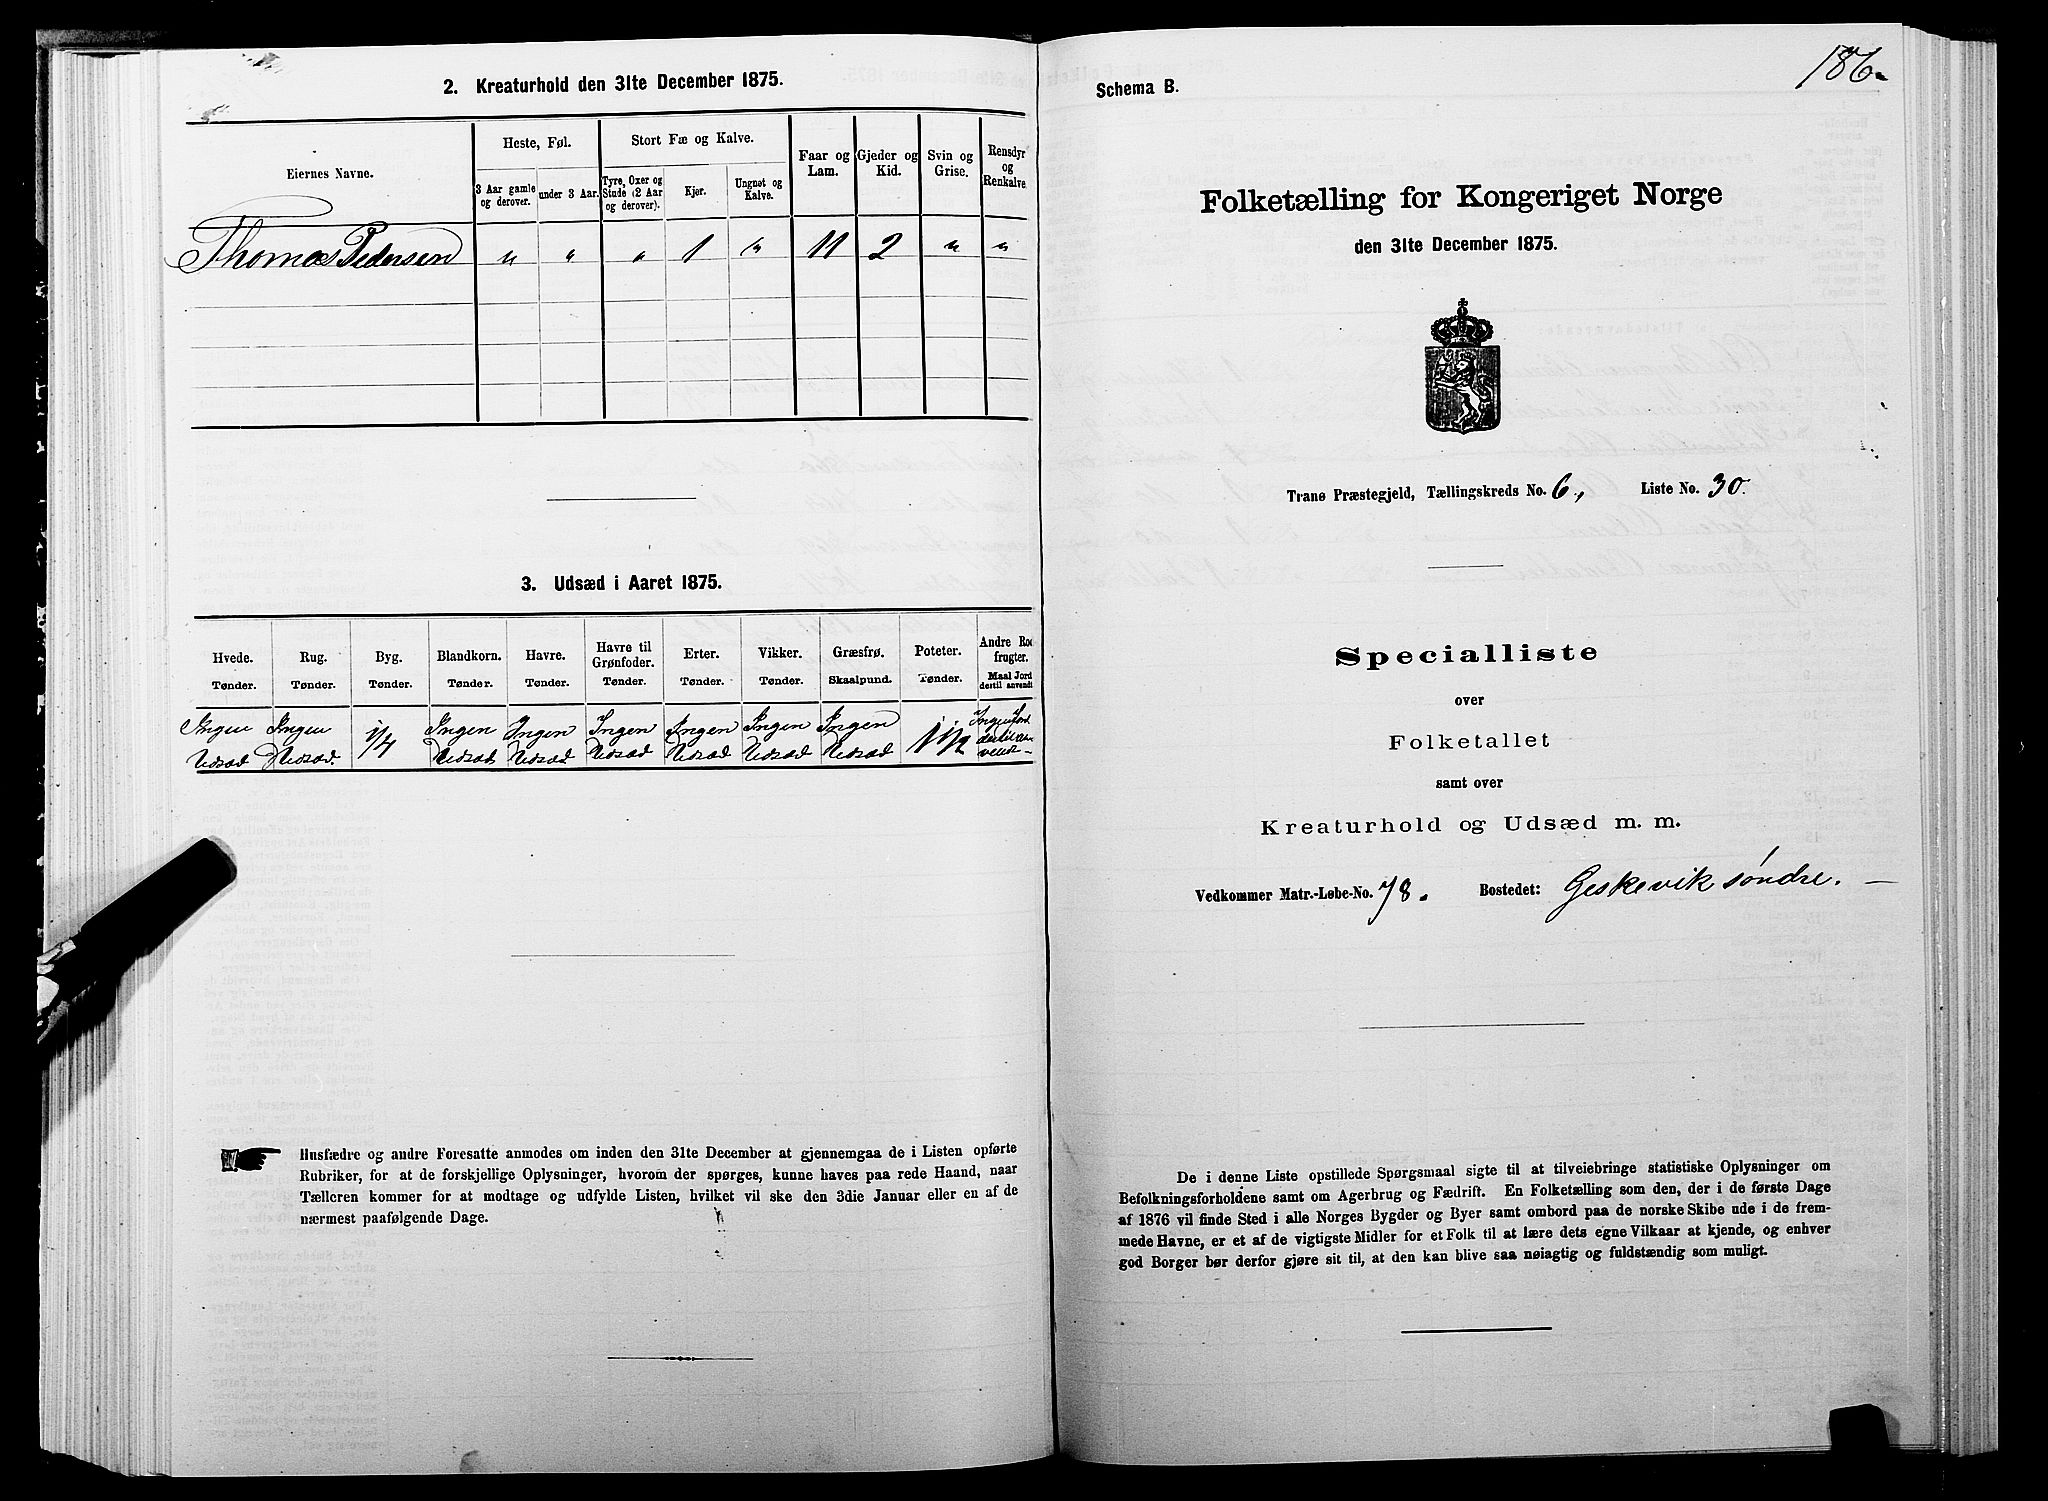 2. Kreaturhold den 31te December 1875.
Eiernes Navne.
Heste, Føl.
Stort Fæ og Kalve.
Faar og Lam.
Gjeder og Kid.
Svin og Grise.
Rensdyr og Renkalve.
3 Aar gamle og derover.
under 3 Aar.
Tyre, Oxer og Stude (2 Aar og derover).
Kjør.
Ungnøt og Kalve.
Thomas Pedersen " " " 1 " 11 2 " "
3. Udsæd i Aaret 1875.
Hvede. Rug. Byg. Blandkorn. Havre. Havre til Grønfoder. Erter. Vikker. Græsfrø. Poteter. Andre Rodfrugter.
Tønder. Tønder. Tønder. Tønder. Tønder. Tønder. Tønder. Tønder. Skaalpund. Tønder. Maal Jord dertil anvendt
Ingen Udsæd Ingen Udsæd. 1/4 Ingen Udsæd Ingen Udsæd Ingen Udsæd Ingen Udsæd Ingen Udsæd Ingen Udsæd 1 1/2 Ingen Jord dertil anvendt
Husfædre og andre Foresatte anmodes om inden den 31te December at gjennemgaa de i Listen opførte
Rubriker, for at de forskjellige Oplysninger, hvorom der spørges, kunne haves paa rede Haand, naar
Tælleren kommer for at modtage og udfylde Listen, hvilket vil ske den 3die Januar eller en af de
nærmest paafølgende Dage.
186
Schema B.
Folketælling for Kongeriget Norge
den 31te December 1875.
Tranø Præstegjeld, Tællingskreds No. 6, Liste No. 30.
Specialliste
over
Folketallet
samt over
Kreaturhold og Udsæd m. m.
Vedkommer Matr.-Løbe-No. 78. Bostedet: Geskevik søndre.
De i denne Liste opstillede Spørgsmaal sigte til at tilveiebringe statistiske Oplysninger om
Befolkningsforholdene samt om Agerbrug og Fædrift. En Folketælling som den, der i de første Dage
af 1876 vil finde Sted i alle Norges Bygder og Byer samt ombord paa de norske Skibe ude i de frem-
mede Havne, er et af de vigtigste Midler for et Folk til at lære dets egne Vilkaar at kjende, og enhver
god Borger bør derfor gjøre sit til, at den kan blive saa nøiagtig og fuldstændig som muligt.